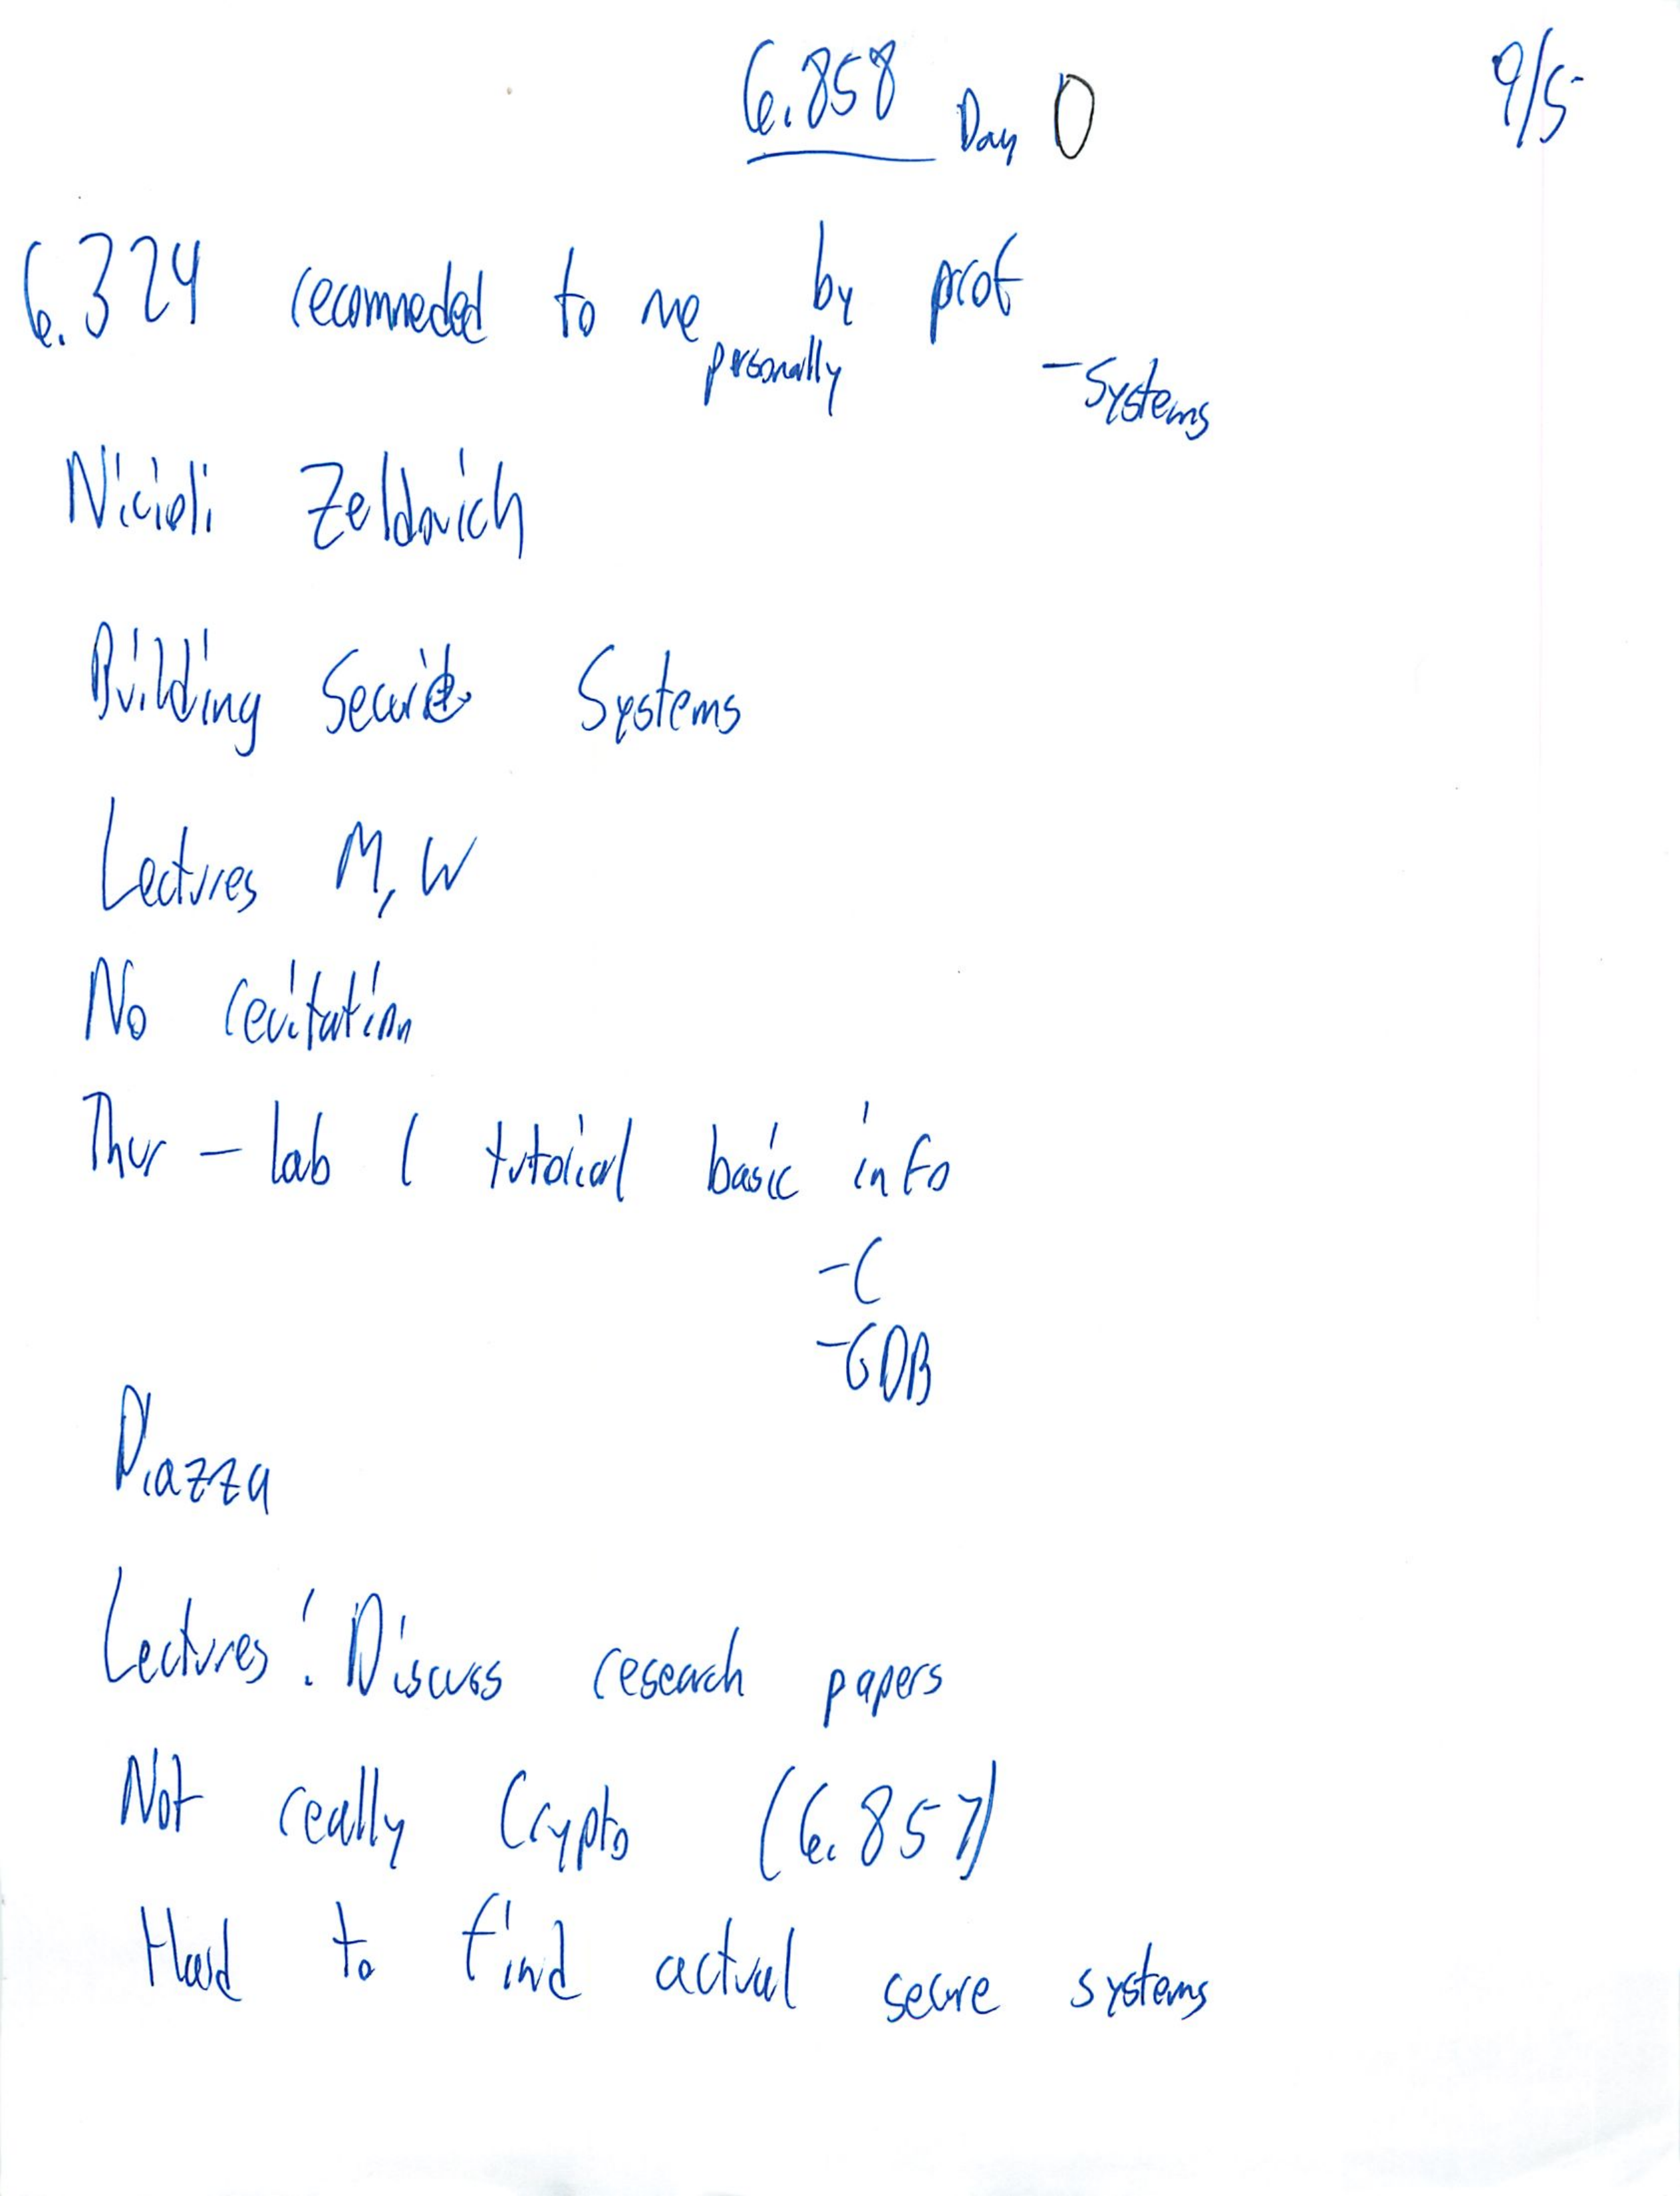 6.858 Day 0
9/5
6.324 recommeded to me personally by prof
- Systems
Nicioli Zeldovich
Building Secure Systems
Lectures M, W
No recitation
Thur - lab ( tutorial basic info
- C
- GDB
Piazza
Lectures: Discuss research papers
Not really Crypto (6.857)
Hard to find actual secure systems